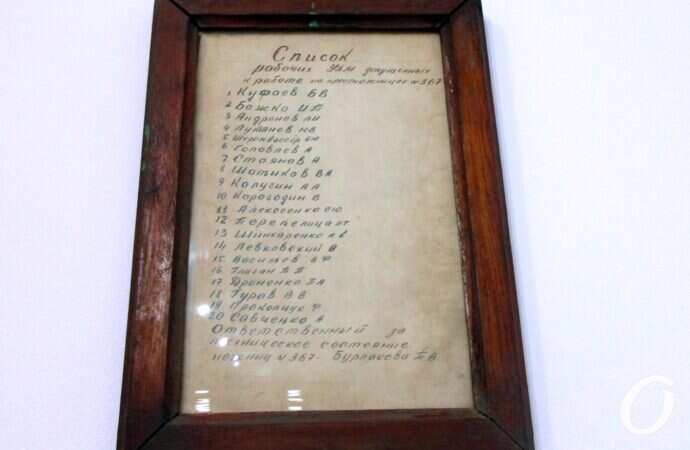 Список
рабочих допущенных
к работе на №367
1 Куфаев БВ
2 Божко И П
3 Андронов ЛИ
4 Лутанов ЮВ
5
6 Головлев А
7 Стоянов А
8 Шатиков ВА
9 Капусин АА
10 Карагодин В
11 Алексеенко СЮ
12 Перепелица
13 Шинкаренко
14 Левковский В
15 Васильев В Ф
16 Глиган
17 Дроненко ПА
18 Гуров В В
19 Прокопчук Ф
20 Савченко А
Ответственный за
техническое состояние
ножниц №367- Бурлакова В